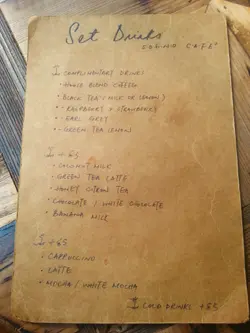 Set Drinks
CAFE'
I COMPLIMENTARY DRINKS
• HOUSE BLEND COFFEE
• BLACK TEA (MILK OR LEMON)
• RASPBERRY & STRAWBERRY
• EARL GREY
- GREEN TEA LEMON
I + 6$
• COCONUT MILK
• GREEN TEA LATTE
• HONEY CITRON TEA
• CHOCOLATE / WHITE CHOCOLATE
• BANANA MILK
I + 8$
• CAPPUCCINO
• LATTE
• MOCHA / WHITE MOCHA
I COLD DRINKS +8$